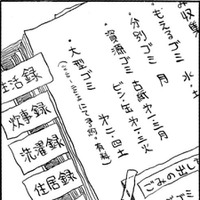 収集
・もえるゴミ 水・土
・分別ゴミ 月
・資源ゴミ 古紙 第一・三月
ビン・缶 第二・三火
・大型ゴミ 第二・四土
ごみの出し
ゴミ
生活録
炊事録
洗濯録
住居録